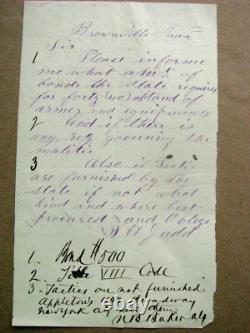 Brownville Iowa
Sir
1 Please informe
me what amt. of
bonds the State requires
for forty (40) stand of
armes and equipments
2 And if there is
any reg governing the
malitia
3 Also if Tactics
are furnished by the
State if not what
kind and where best
procured and Oblige
W H Judd
1. Bond $500
2. Title VIII Code
3. Tactics are not furnished
Appleton's Broadway
New York
N B Baker